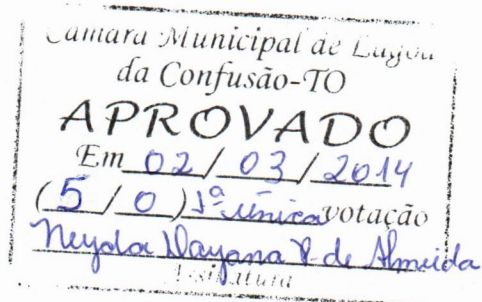 Câmara Municipal de Lagoa
da Confusão-TO
APROVADO
Em 02 / 03 / 2014
( 5 / 0 ) 1ª única votação
Neyola Dayana R. de Almeida
Assinatura